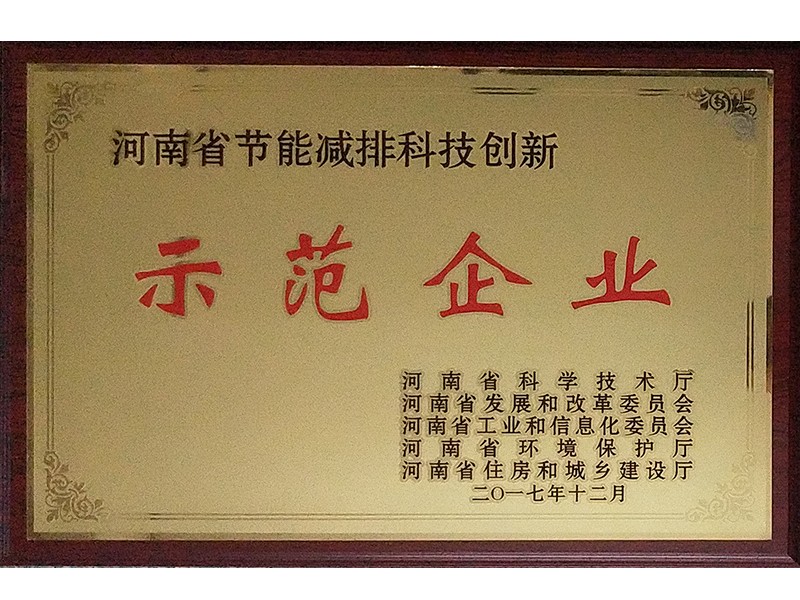 河南省节能减排科技创新
示范企业
河南省科学技术厅
河南省发展和改革委员会
河南省工业和信息化委员会
河南省环境保护厅
河南省住房和城乡建设厅
二〇一七年十二月